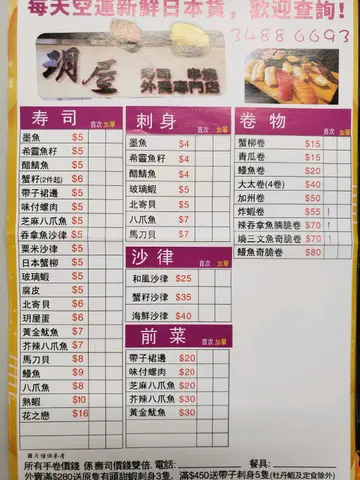 每天空運新鮮日本貨，歡迎查詢！
34886693
玥屋
壽司 串燒
外賣專門店
壽司 首次 加單
墨魚 $5
希靈魚籽 $5
醋鯖魚 $5
蟹籽(2件起) $6
帶子裙邊 $5
味付螺肉 $5
芝麻八爪魚 $5
吞拿魚沙律 $5
粟米沙律 $5
日本蟹柳 $5
玻璃蝦 $5
腐皮 $5
北寄貝 $6
玥屋蛋 $6
黃金魷魚 $7
芥辣八爪魚 $7
馬刀貝 $8
鰻魚 $9
八爪魚 $8
熟蝦 $10
花之戀 $16
刺身 首次 加單
墨魚 $4
希靈魚籽 $4
醋鯖魚 $4
玻璃蝦 $5
北寄貝 $5
八爪魚 $7
馬刀貝 $7
沙律 首次 加單
和風沙律 $25
蟹籽沙律 $35
海鮮沙律 $40
前菜 首次 加單
帶子裙邊 $20
味付螺肉 $20
芝麻八爪魚 $20
芥辣八爪魚 $30
黃金魷魚 $30
卷物 首次 加單
蟹柳卷 $15
青瓜卷 $15
鰻魚卷 $20
大太卷(4卷) $40
加州卷 $50
炸蝦卷 $55
辣吞拿魚腩脆卷 $70
燒三文魚奇脆卷 $70
鰻魚奇脆卷 $80
圖片僅供參考
所有手卷價錢 係壽司價錢雙倍. 電話: 餐具:
外賣滿$280送原隻有頭甜蝦刺身3隻, 滿$450送帶子刺身5隻(牡丹蝦及定食除外)